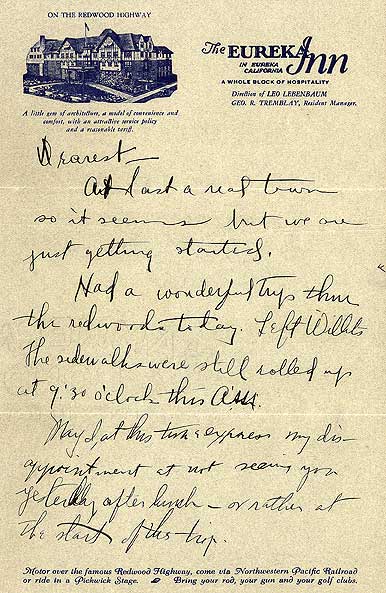 ON THE REDWOOD HIGHWAY
The EUREKA Inn
IN EUREKA
CALIFORNIA
A WHOLE BLOCK OF HOSPITALITY
Direction of LEO LEBENBAUM
GEO. R. TREMBLAY, Resident Manager.
A little gem of architecture, a model of convenience and
comfort, with an attractive service policy
and a reasonable tariff.
Dearest—
At last a real town
so it seems but we are
just getting started.
Had a wonderful trip thru
the redwoods today. Left Willits
The sidewalks were still rolled up
at 9:30 o'clock this A.M.
May I at this time express my dis-
appointment at not seeing you
yesterday after lunch – or rather at
the start of this trip.
Motor over the famous Redwood Highway, come via Northwestern Pacific Railroad
or ride in a Pickwick Stage. Bring your rod, your gun and your golf clubs.